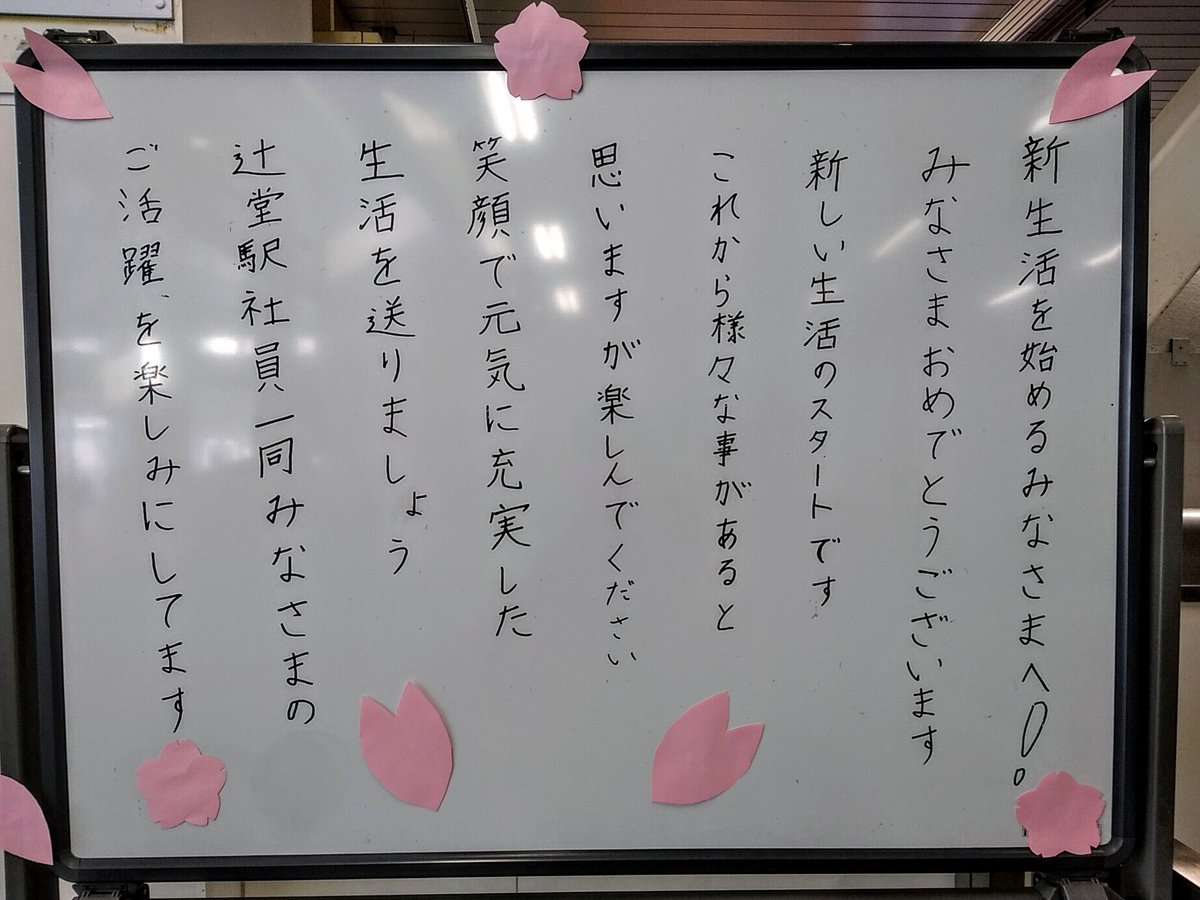 新生活を始めるみなさまへ!
みなさまおめでとうございます
新しい生活のスタートです
これから様々な事があると
思いますが楽しんでください
笑顔で元気に充実した
生活を送りましょう
辻堂駅社員一同みなさまの
ご活躍を楽しみにしてます